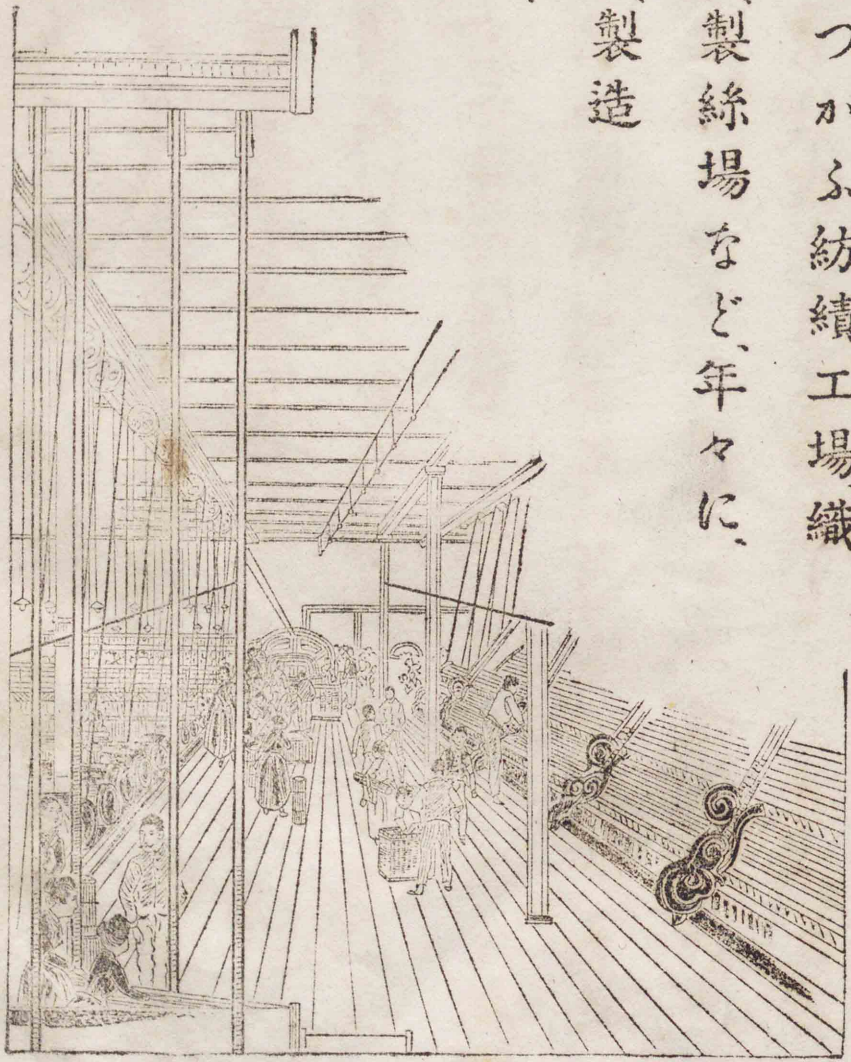 つかふ紡績工場織
製絲場など、年々に、
製造